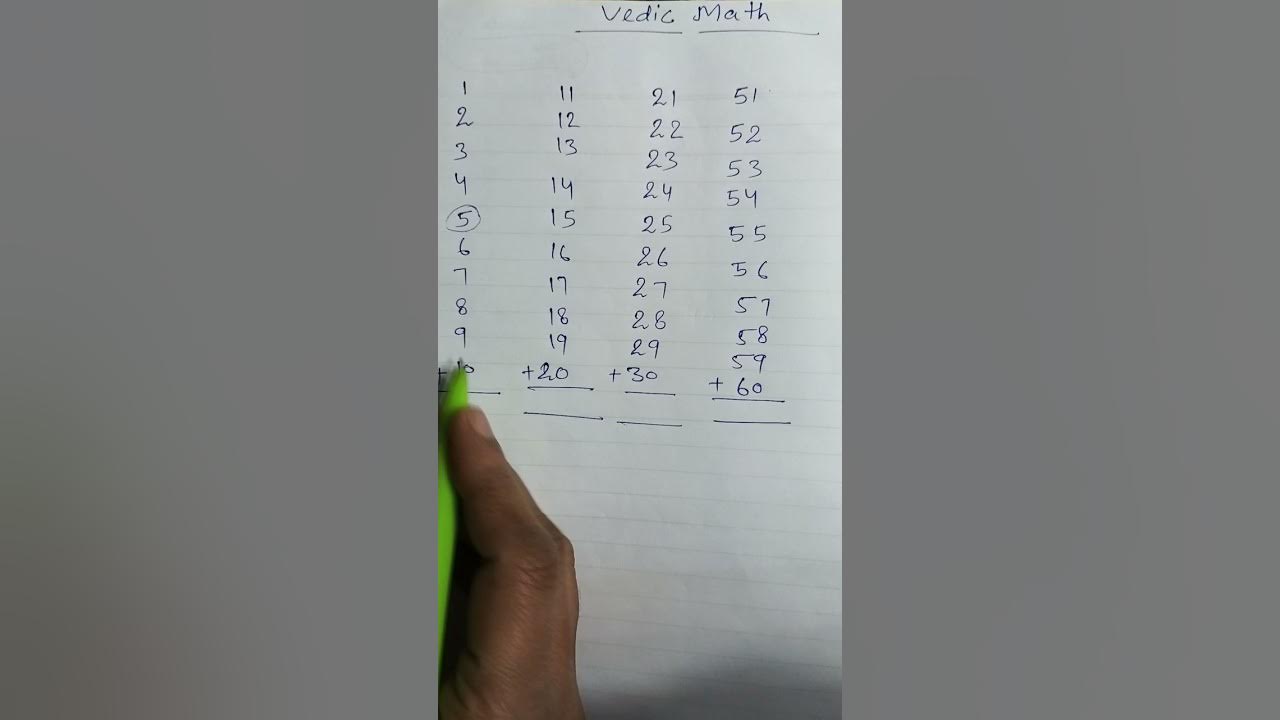 Vedic Math
1 11 21 51
2 12 22 52
3 13 23 53
4 14 24 54
5 15 25 55
6 16 26 56
7 17 27 57
8 18 28 58
9 19 29 59
+10 +20 +30 +60